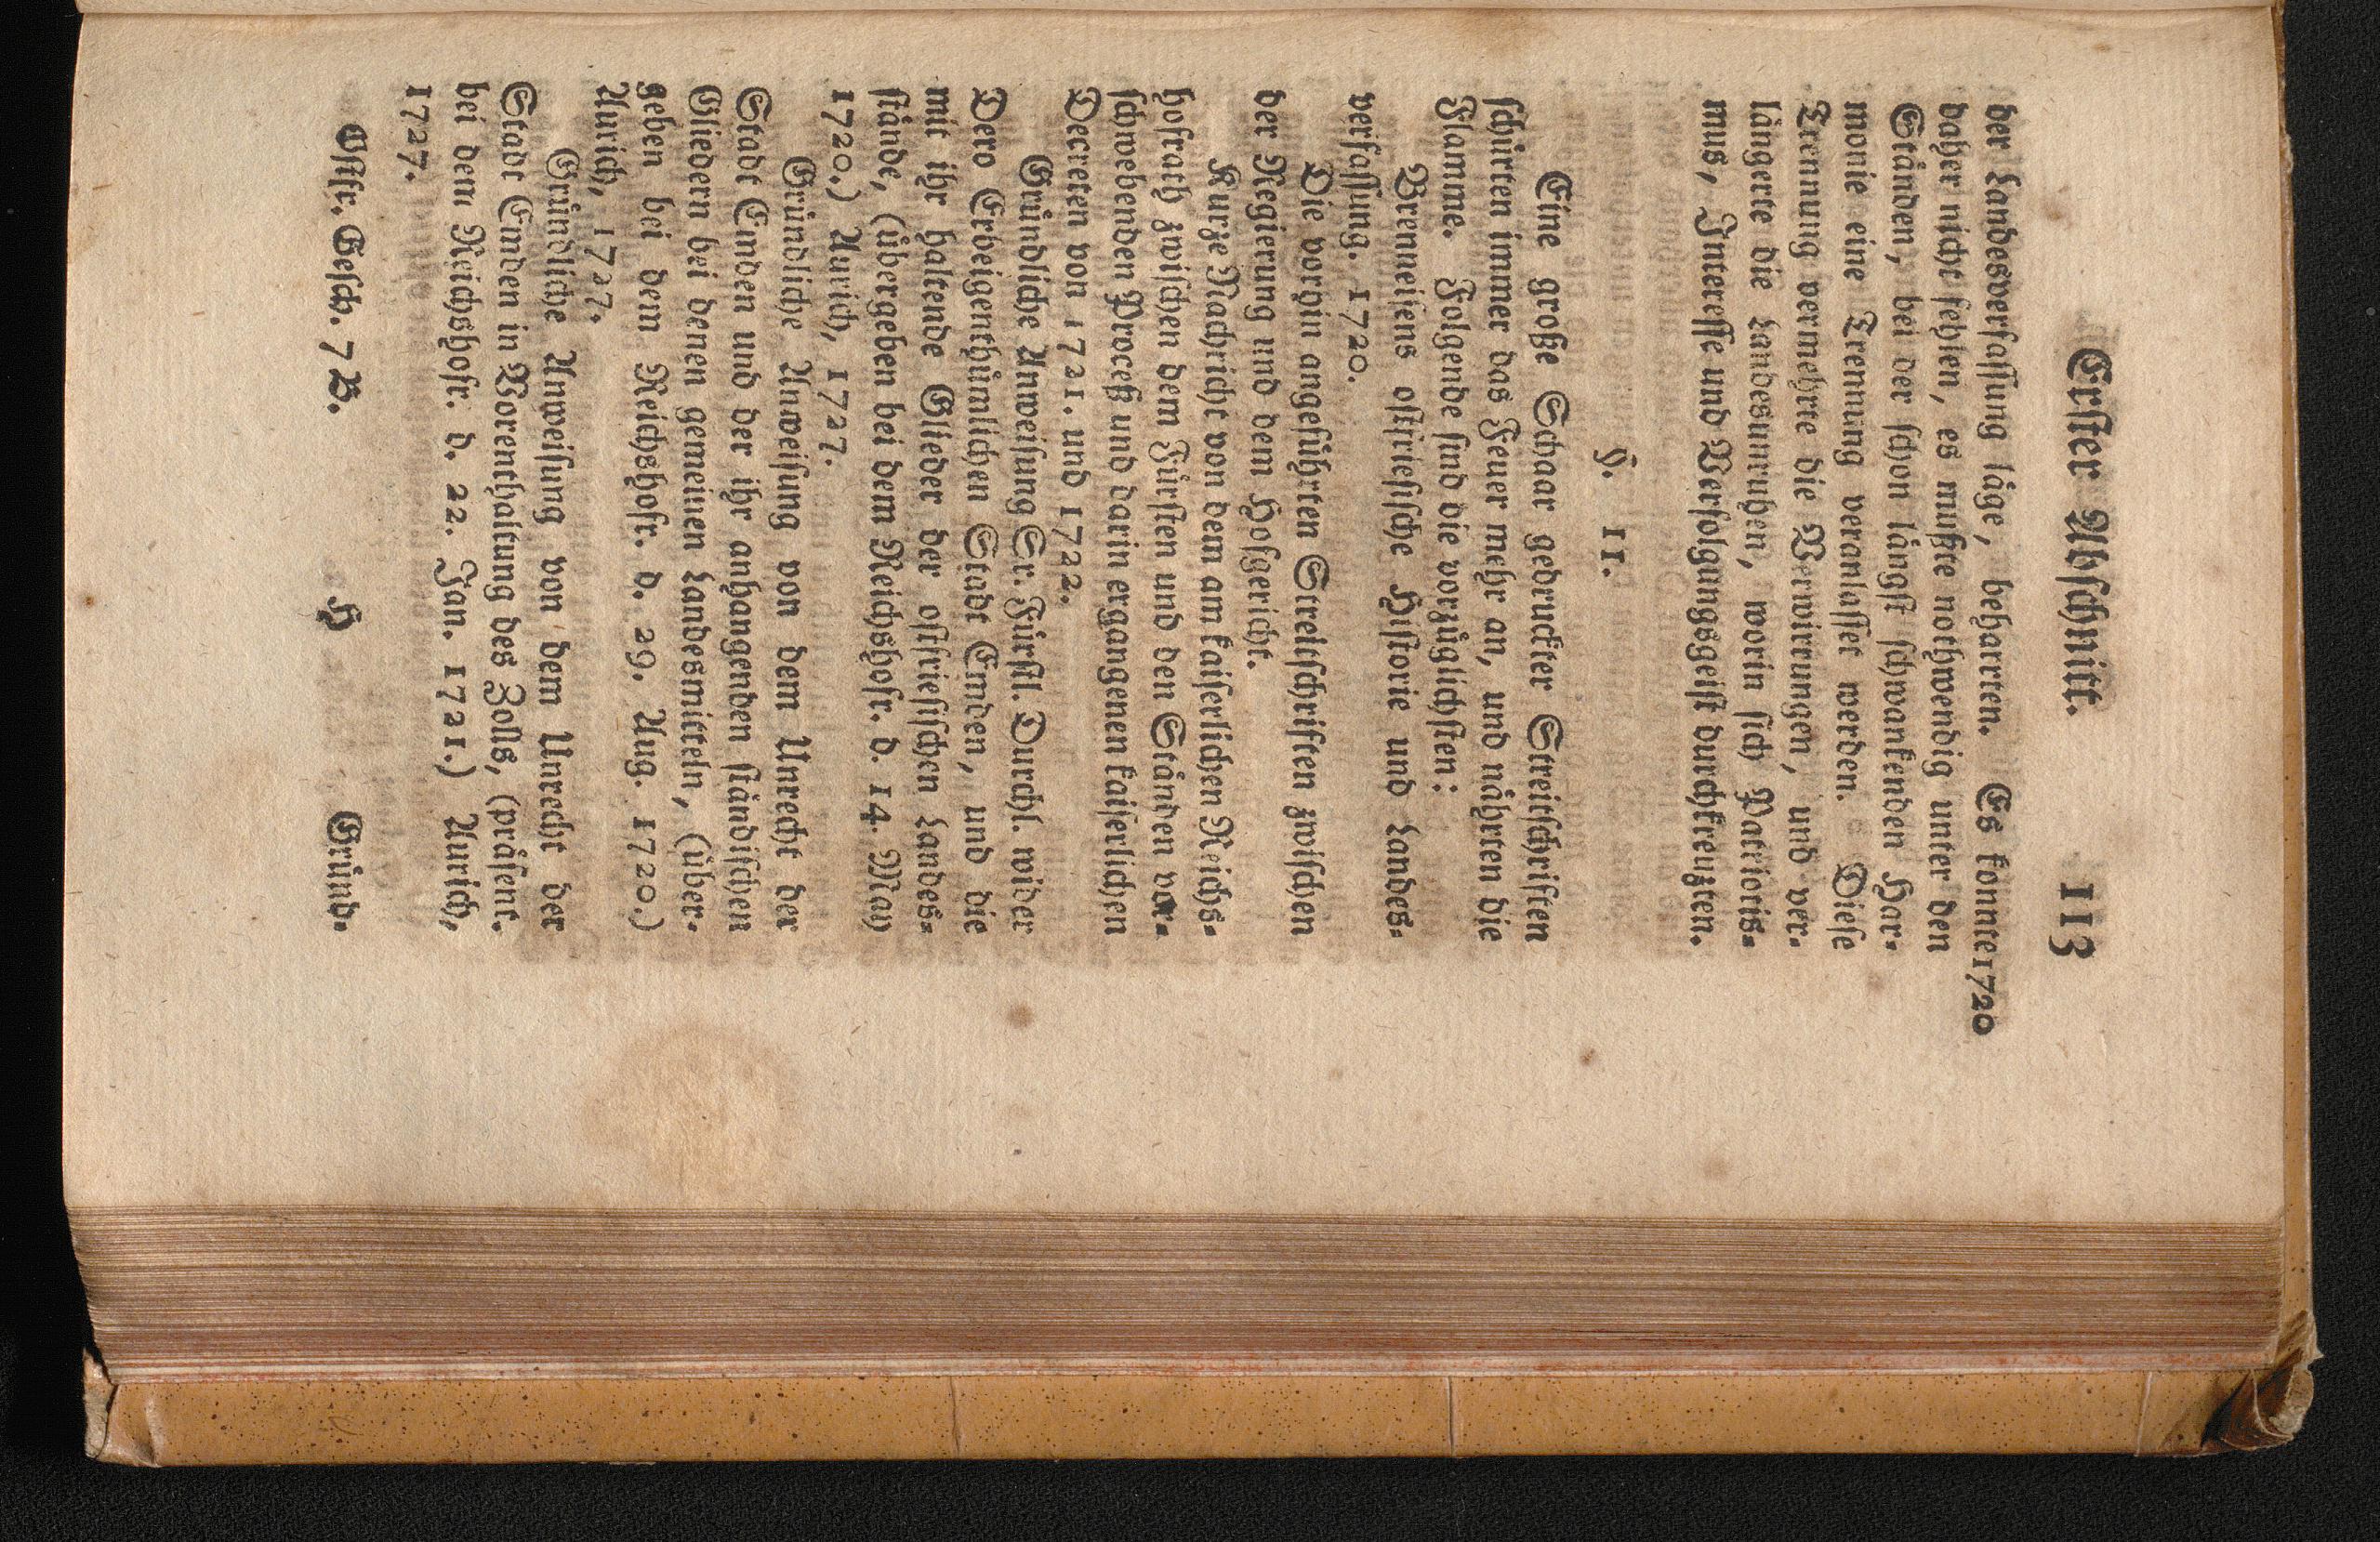 Erster Abschnitt. 113
der Landesverfassung läge, beharrten. Es konnte 1720
daher nicht fehlen, es mußte nothwendig unter den
Ständen, bei der schon längst schwankenden Har-
monie eine Trennung veranlasset werden. Diese
Trennung vermehrte die Verwirrungen, und ver-
längerte die Landesunruhen, worin sich Patriotis-
mus, Interesse und Verfolgungsgeist durchkreuzten.
§. 11.
Eine große Schaar gedruckter Streitschriften
schürten immer das Feuer mehr an, und nährten die
Flamme. Folgende sind die vorzüglichsten:
Brenneisens ostfriesische Historie und Landes-
verfassung. 1720.
Die vorhin angeführten Streitschriften zwischen
der Regierung und dem Hofgericht.
Kurze Nachricht von dem am kaiserlichen Reichs-
hofrath zwischen dem Fürsten und den Ständen vor-
schwebenden Proceß und darin ergangenen kaiserlichen
Decreten von 1721. und 1722.
Gründliche Anweisung Sr. Fürstl. Durchl. wider
Dero Erbeigenthümlichen Stadt Emden, und die
mit ihr haltende Glieder der ostfriesischen Landes-
stände, (übergeben bei dem Reichshofr. d. 14. May
1720.) Aurich, 1727.
Gründliche Anweisung von dem Unrecht der
Stadt Emden und der ihr anhangenden ständischen
Gliedern bei denen gemeinen Landesmitteln, (über-
geben bei dem Reichshofr. d. 29. Aug. 1720.)
Aurich, 1727.
Gründliche Anweisung von dem Unrecht der
Stadt Emden in Vorenthaltung des Zolls, (präsent.
bei dem Reichshofr. d. 22. Jan. 1721.) Aurich,
1727.
Ostfr. Gesch. 7 B. H Gründ-